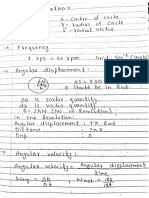 0 = centre of circle
R = radius of circle
r̄ = radial vector
→ Frequency
1 rps = 60 rpm Unit: Sec⁻¹
→ Angular displacement :-
Should be in Rad.
Δθ is scalar quantity
is vector quantity
θ = 2πN (No. of Revolution)
in one Revolution:
Angular displacement : 2π Rad
Distance : 2πR
Disp. : 0
→ Angular velocity :
Angular velocity = Angular displacement
time
Wavg. = Δθ , Winst. = dθ
Δt dt